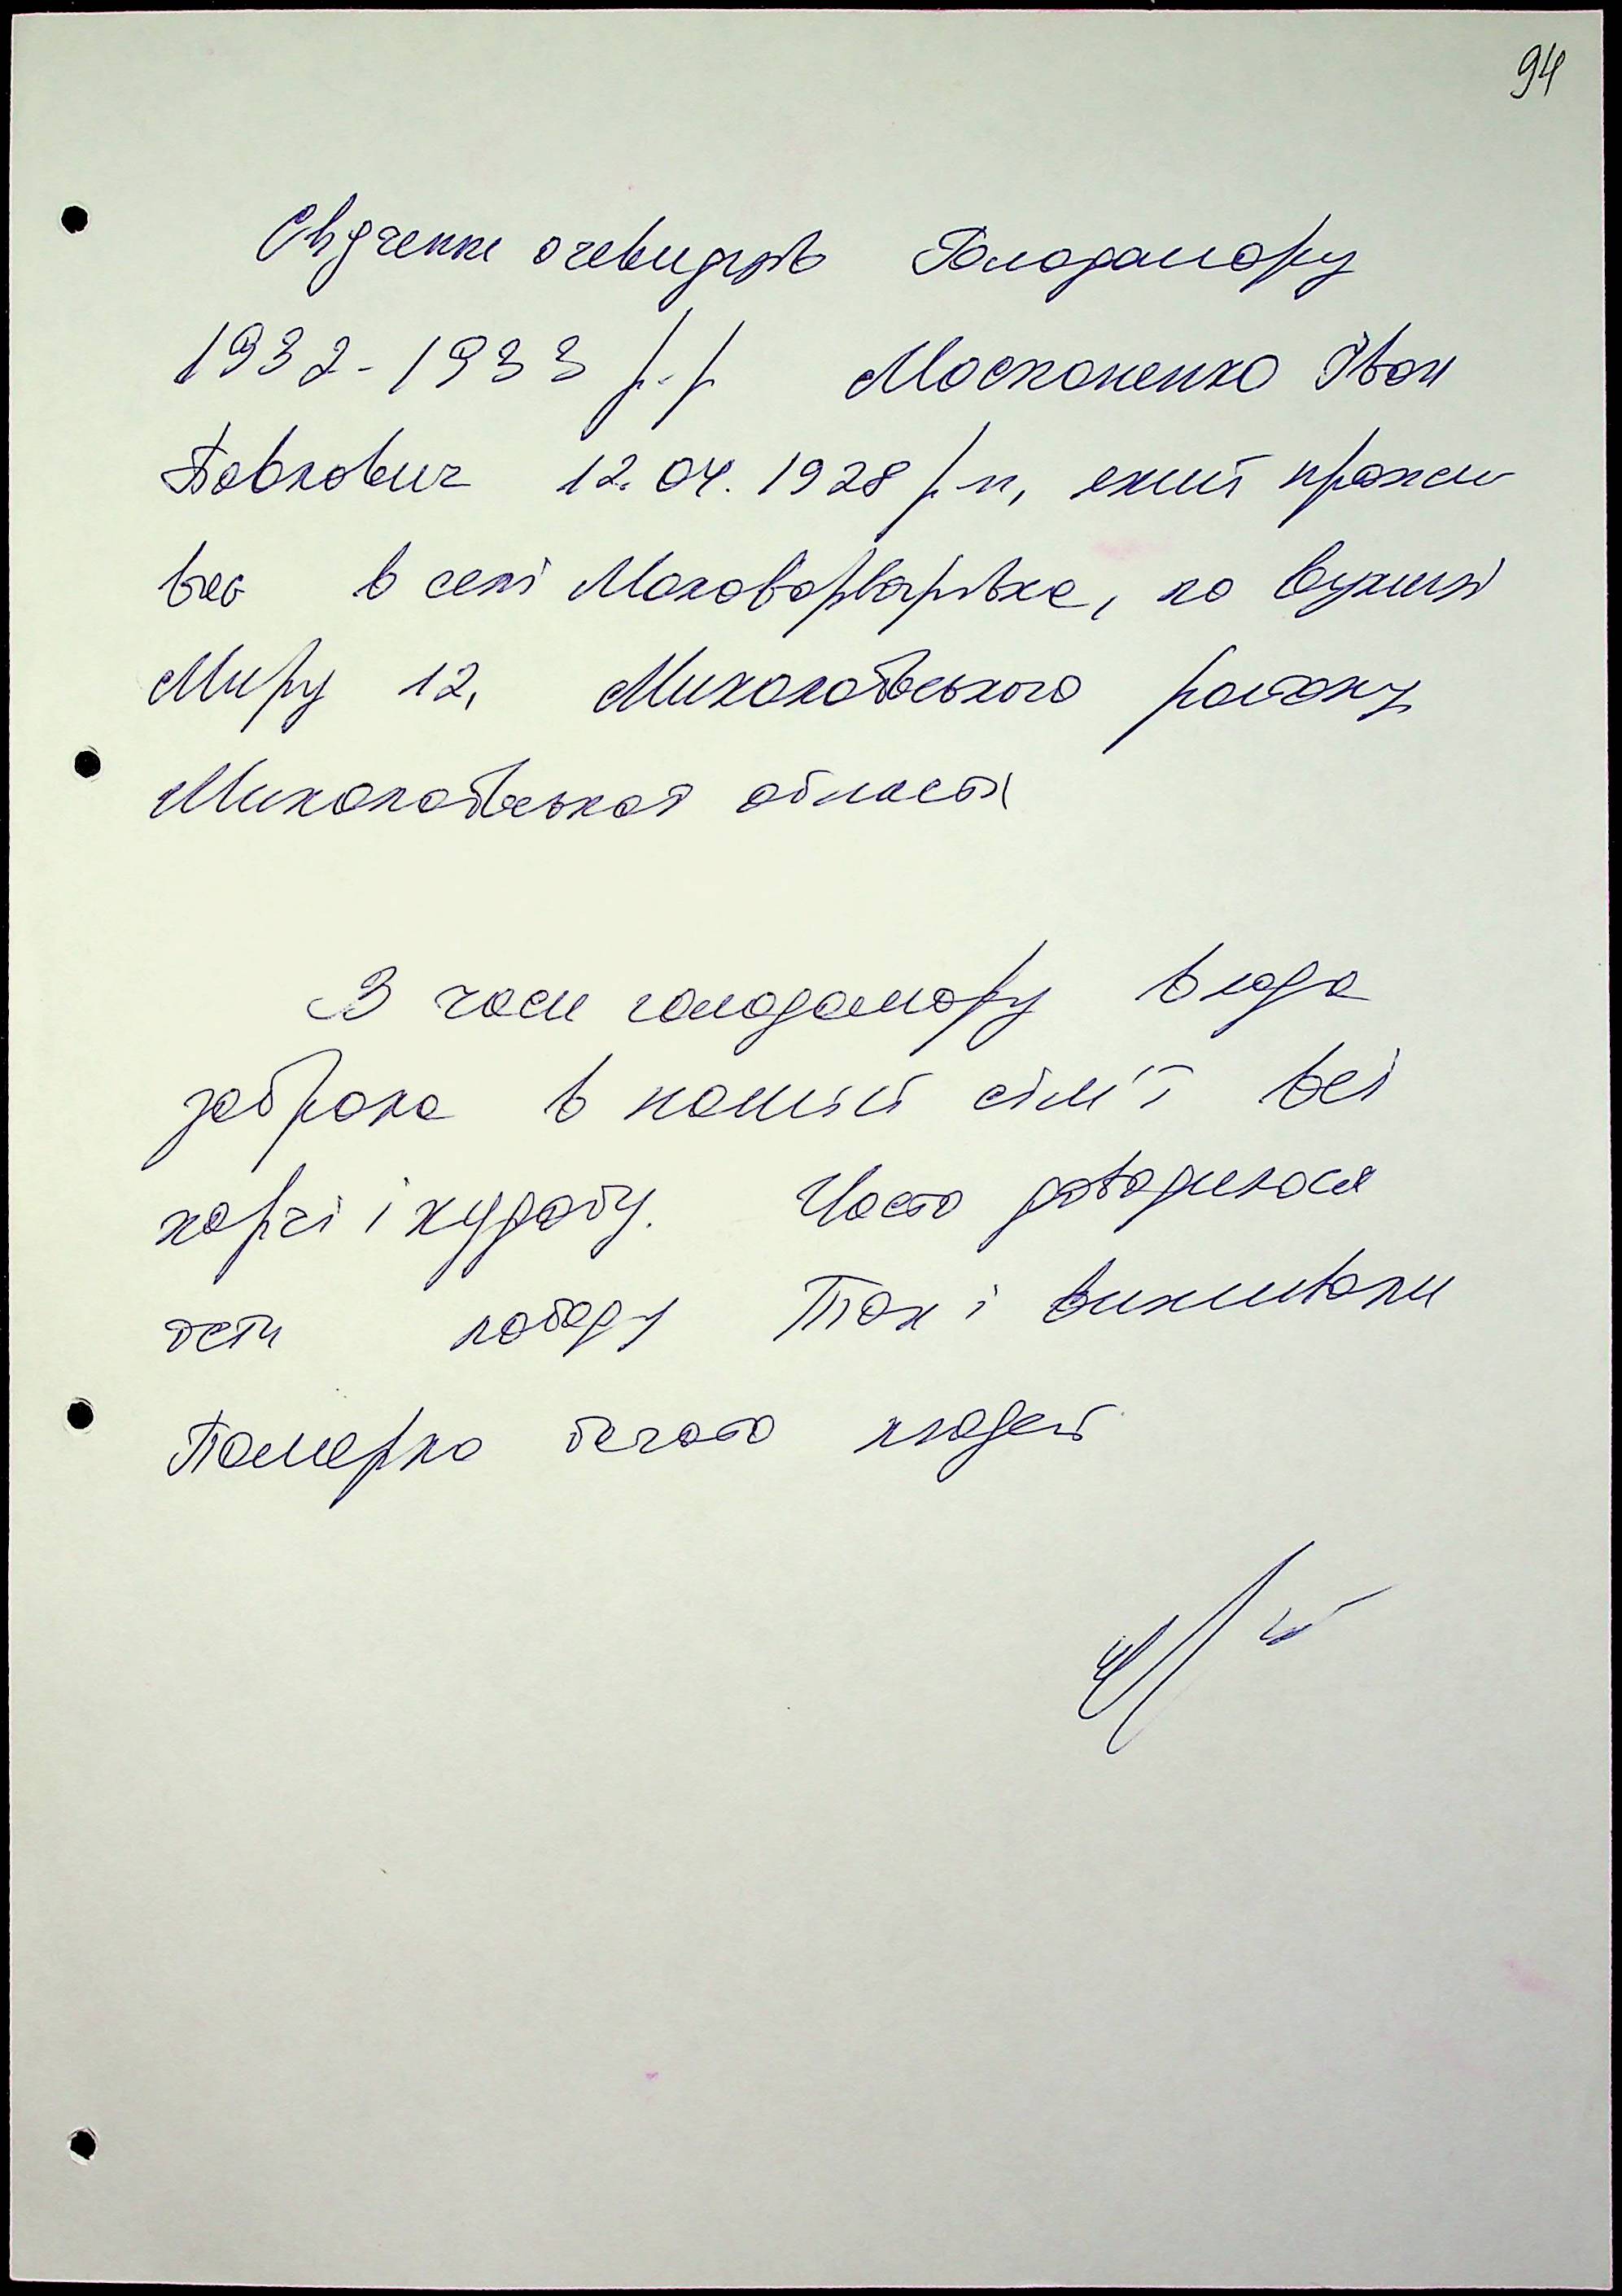 94
Свідчення очевидців Голодомору
1932-1933 р.р Москаненко Іван
Павлович 12.04.1928 р.н, який прожи
ває в селі Маловарварівка, по вулиці
Миру 12, Миколаївського району
Миколаївської області
В часи голодомору влада
забрала в нашій сім'ї всі
харчі і худобу. Часто доводилося
їсти лободу Так і виживали
Померло багато людей